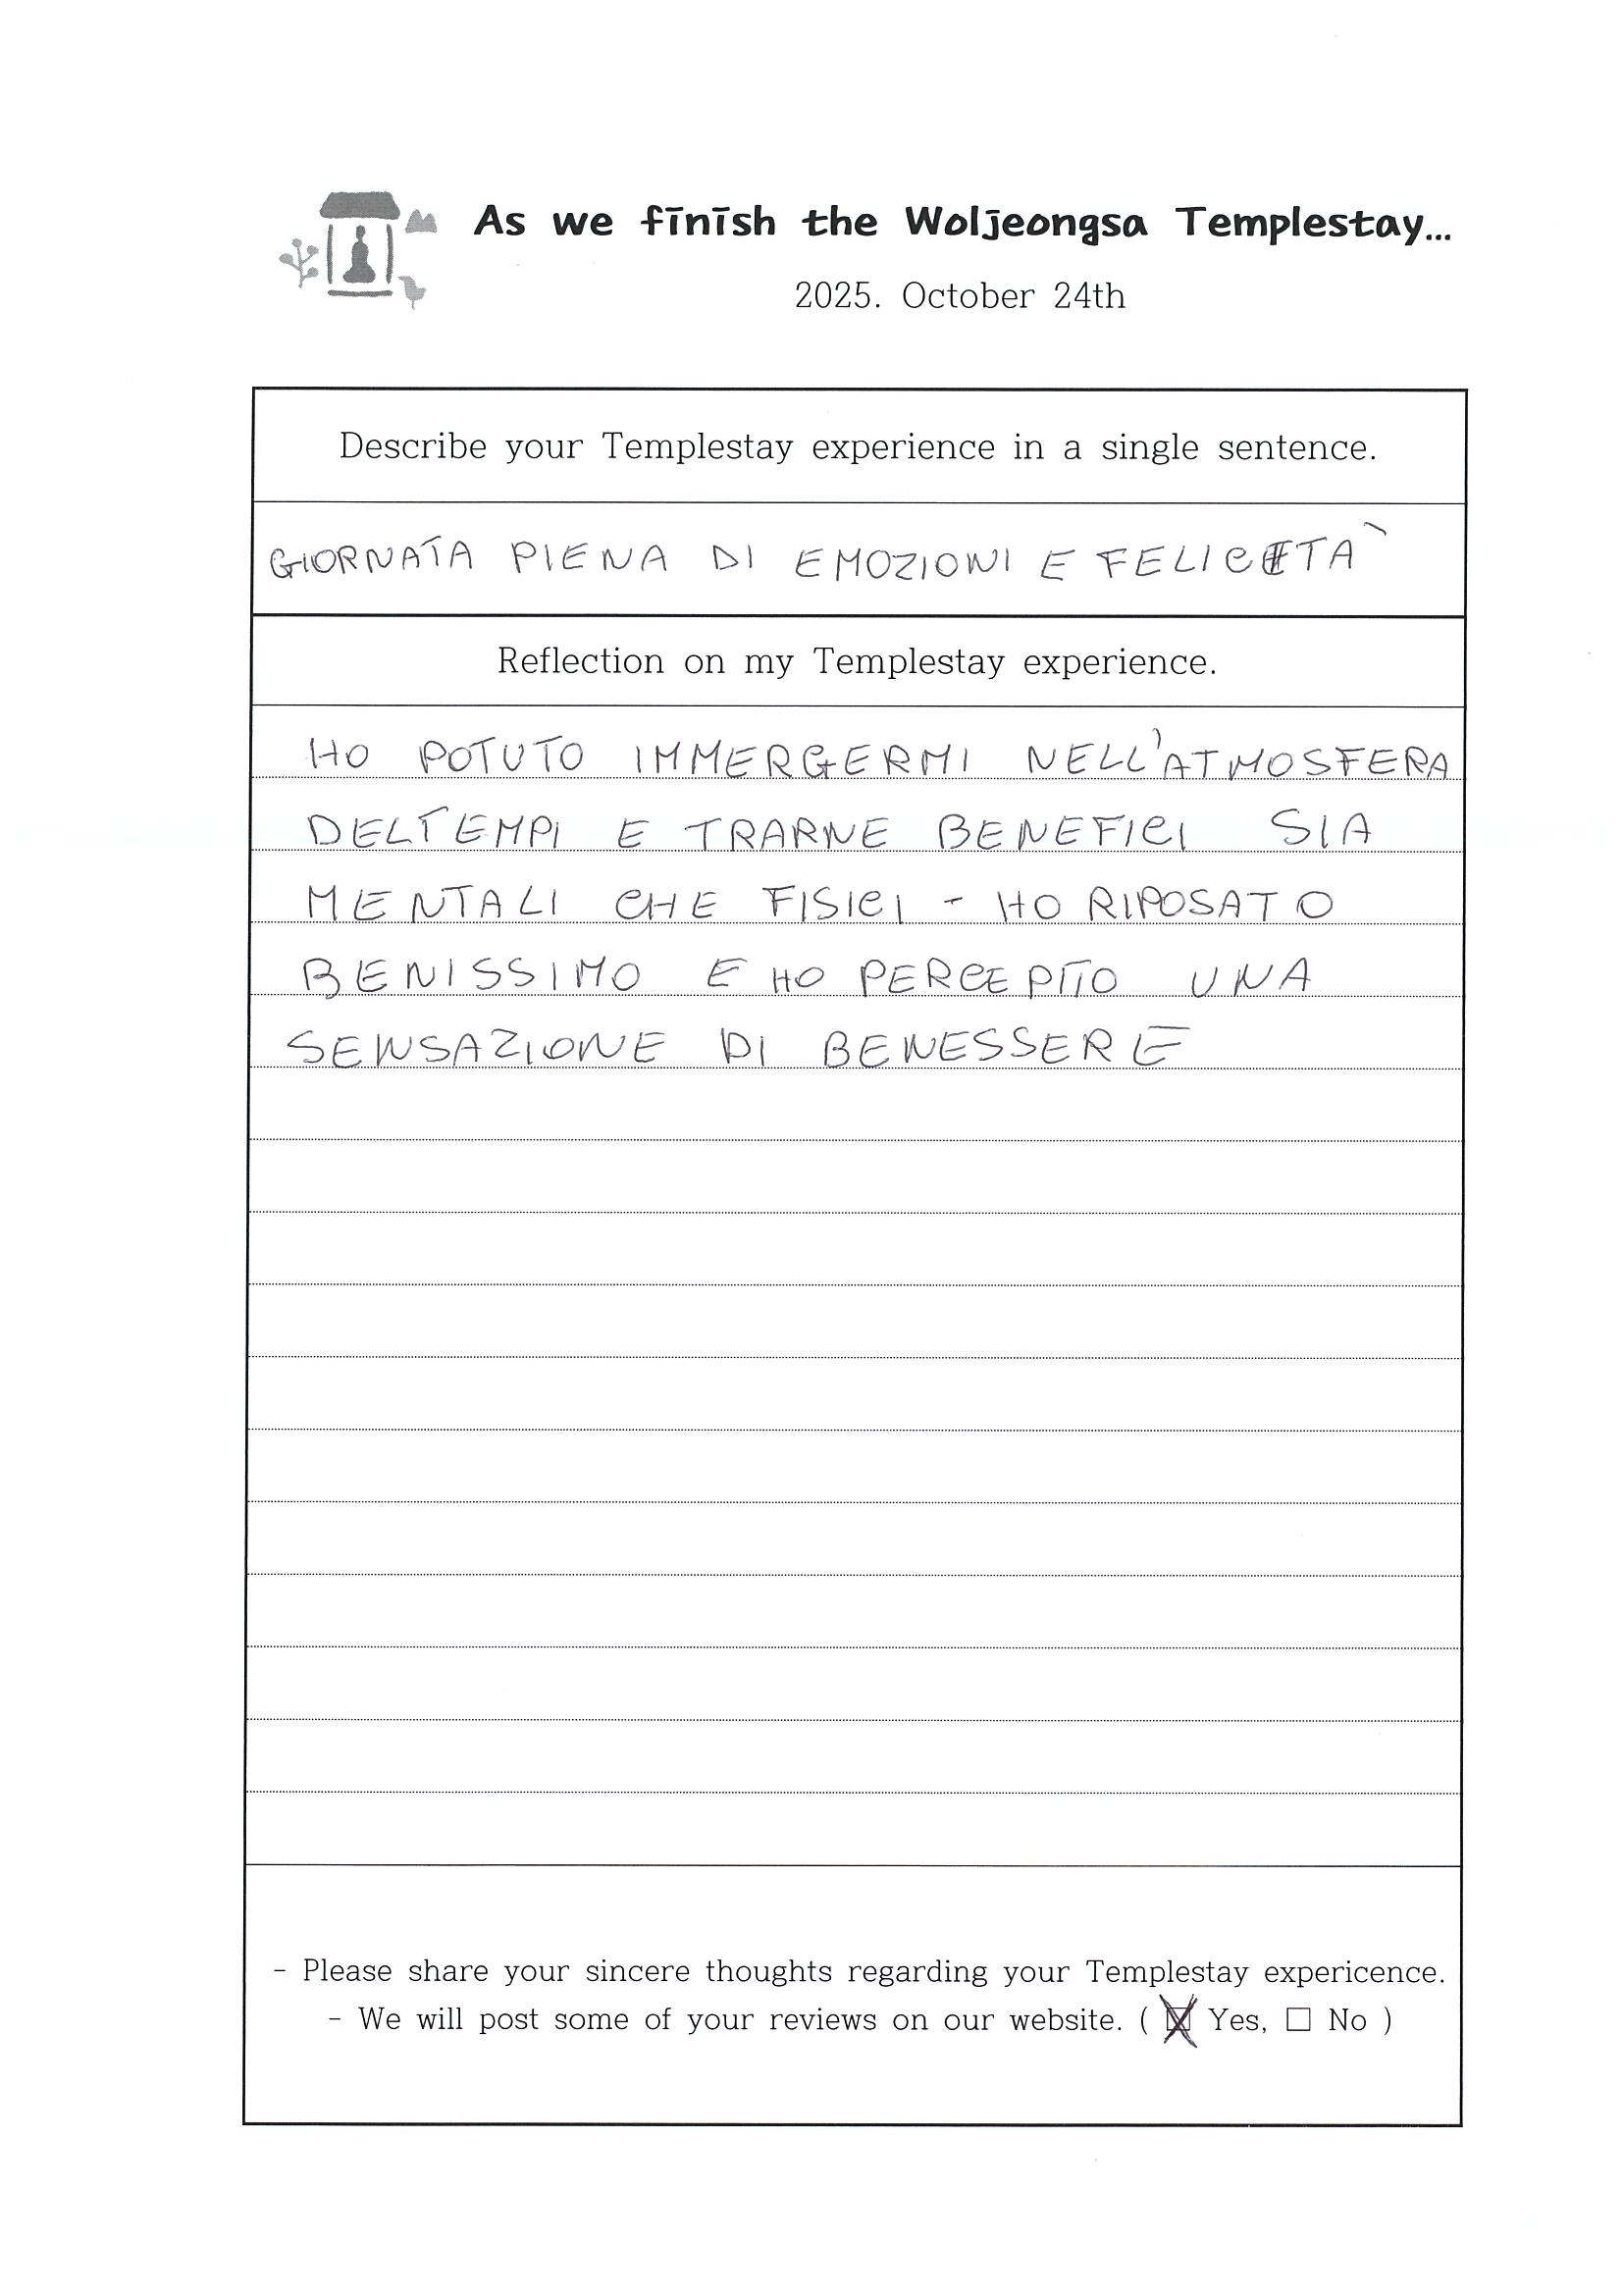 As we finish the Woljeongsa Templestay...
2025. October 24th
Describe your Templestay experience in a single sentence.
GIORNATA PIENA DI EMOZIONI E FELICITA`
Reflection on my Templestay experience.
HO POTUTO IMMERGERMI NELL'ATMOSFERA
DELTEMPI E TRARNE BENEFICI SIA
MENTALI CHE FISICI - HO RIPOSATO
BENISSIMO E HO PERCEPITO UNA
SENSAZIONE DI BENESSERE
- Please share your sincere thoughts regarding your Templestay expericence.
- We will post some of your reviews on our website. ( ☒ Yes, ☐ No )